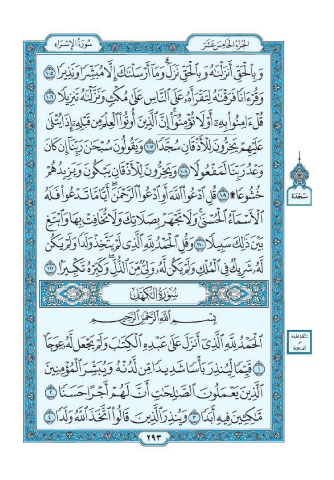 سُورَةُ الإِسْرَاءِ
الجُزْءُ الخَامِسَ عَشَرَ
وَبِالْحَقِّ أَنزَلْنَاهُ وَبِالْحَقِّ نَزَلَ وَمَا أَرْسَلْنَاكَ إِلَّا مُبَشِّرًا وَنَذِيرًا ١٠٥
وَقُرْآنًا فَرَقْنَاهُ لِتَقْرَأَهُ عَلَى النَّاسِ عَلَى مُكْثٍ وَنَزَّلْنَاهُ تَنزِيلًا ١٠٦
قُلْ آمِنُوا بِهِ أَوْ لَا تُؤْمِنُوا إِنَّ الَّذِينَ أُوتُوا الْعِلْمَ مِن قَبْلِهِ إِذَا يُتْلَى
عَلَيْهِمْ يَخِرُّونَ لِلْأَذْقَانِ سُجَّدًا ١٠٧ وَيَقُولُونَ سُبْحَانَ رَبِّنَا إِن كَانَ
وَعْدُ رَبِّنَا لَمَفْعُولًا ١٠٨ وَيَخِرُّونَ لِلْأَذْقَانِ يَبْكُونَ وَيَزِيدُهُمْ
خُشُوعًا ۩ ١٠٩ قُلِ ادْعُوا اللَّهَ أَوِ ادْعُوا الرَّحْمَٰنَ أَيًّا مَّا تَدْعُوا فَلَهُ
الْأَسْمَاءُ الْحُسْنَىٰ وَلَا تَجْهَرْ بِصَلَاتِكَ وَلَا تُخَافِتْ بِهَا وَابْتَغِ
بَيْنَ ذَٰلِكَ سَبِيلًا ١١٠ وَقُلِ الْحَمْدُ لِلَّهِ الَّذِي لَمْ يَتَّخِذْ وَلَدًا وَلَمْ يَكُن
لَّهُ شَرِيكٌ فِي الْمُلْكِ وَلَمْ يَكُن لَّهُ وَلِيٌّ مِّنَ الذُّلِّ وَكَبِّرْهُ تَكْبِيرًا ١١١
سُورَةُ الْكَهْفِ
بِسْمِ اللَّهِ الرَّحْمَٰنِ الرَّحِيمِ
الْحَمْدُ لِلَّهِ الَّذِي أَنزَلَ عَلَىٰ عَبْدِهِ الْكِتَابَ وَلَمْ يَجْعَل لَّهُ عِوَجًا
١ قَيِّمًا لِّيُنذِرَ بَأْسًا شَدِيدًا مِّن لَّدُنْهُ وَيُبَشِّرَ الْمُؤْمِنِينَ
الَّذِينَ يَعْمَلُونَ الصَّالِحَاتِ أَنَّ لَهُمْ أَجْرًا حَسَنًا ٢
مَّاكِثِينَ فِيهِ أَبَدًا ٣ وَيُنذِرَ الَّذِينَ قَالُوا اتَّخَذَ اللَّهُ وَلَدًا ٤
٢٩٣
سَجْدَة